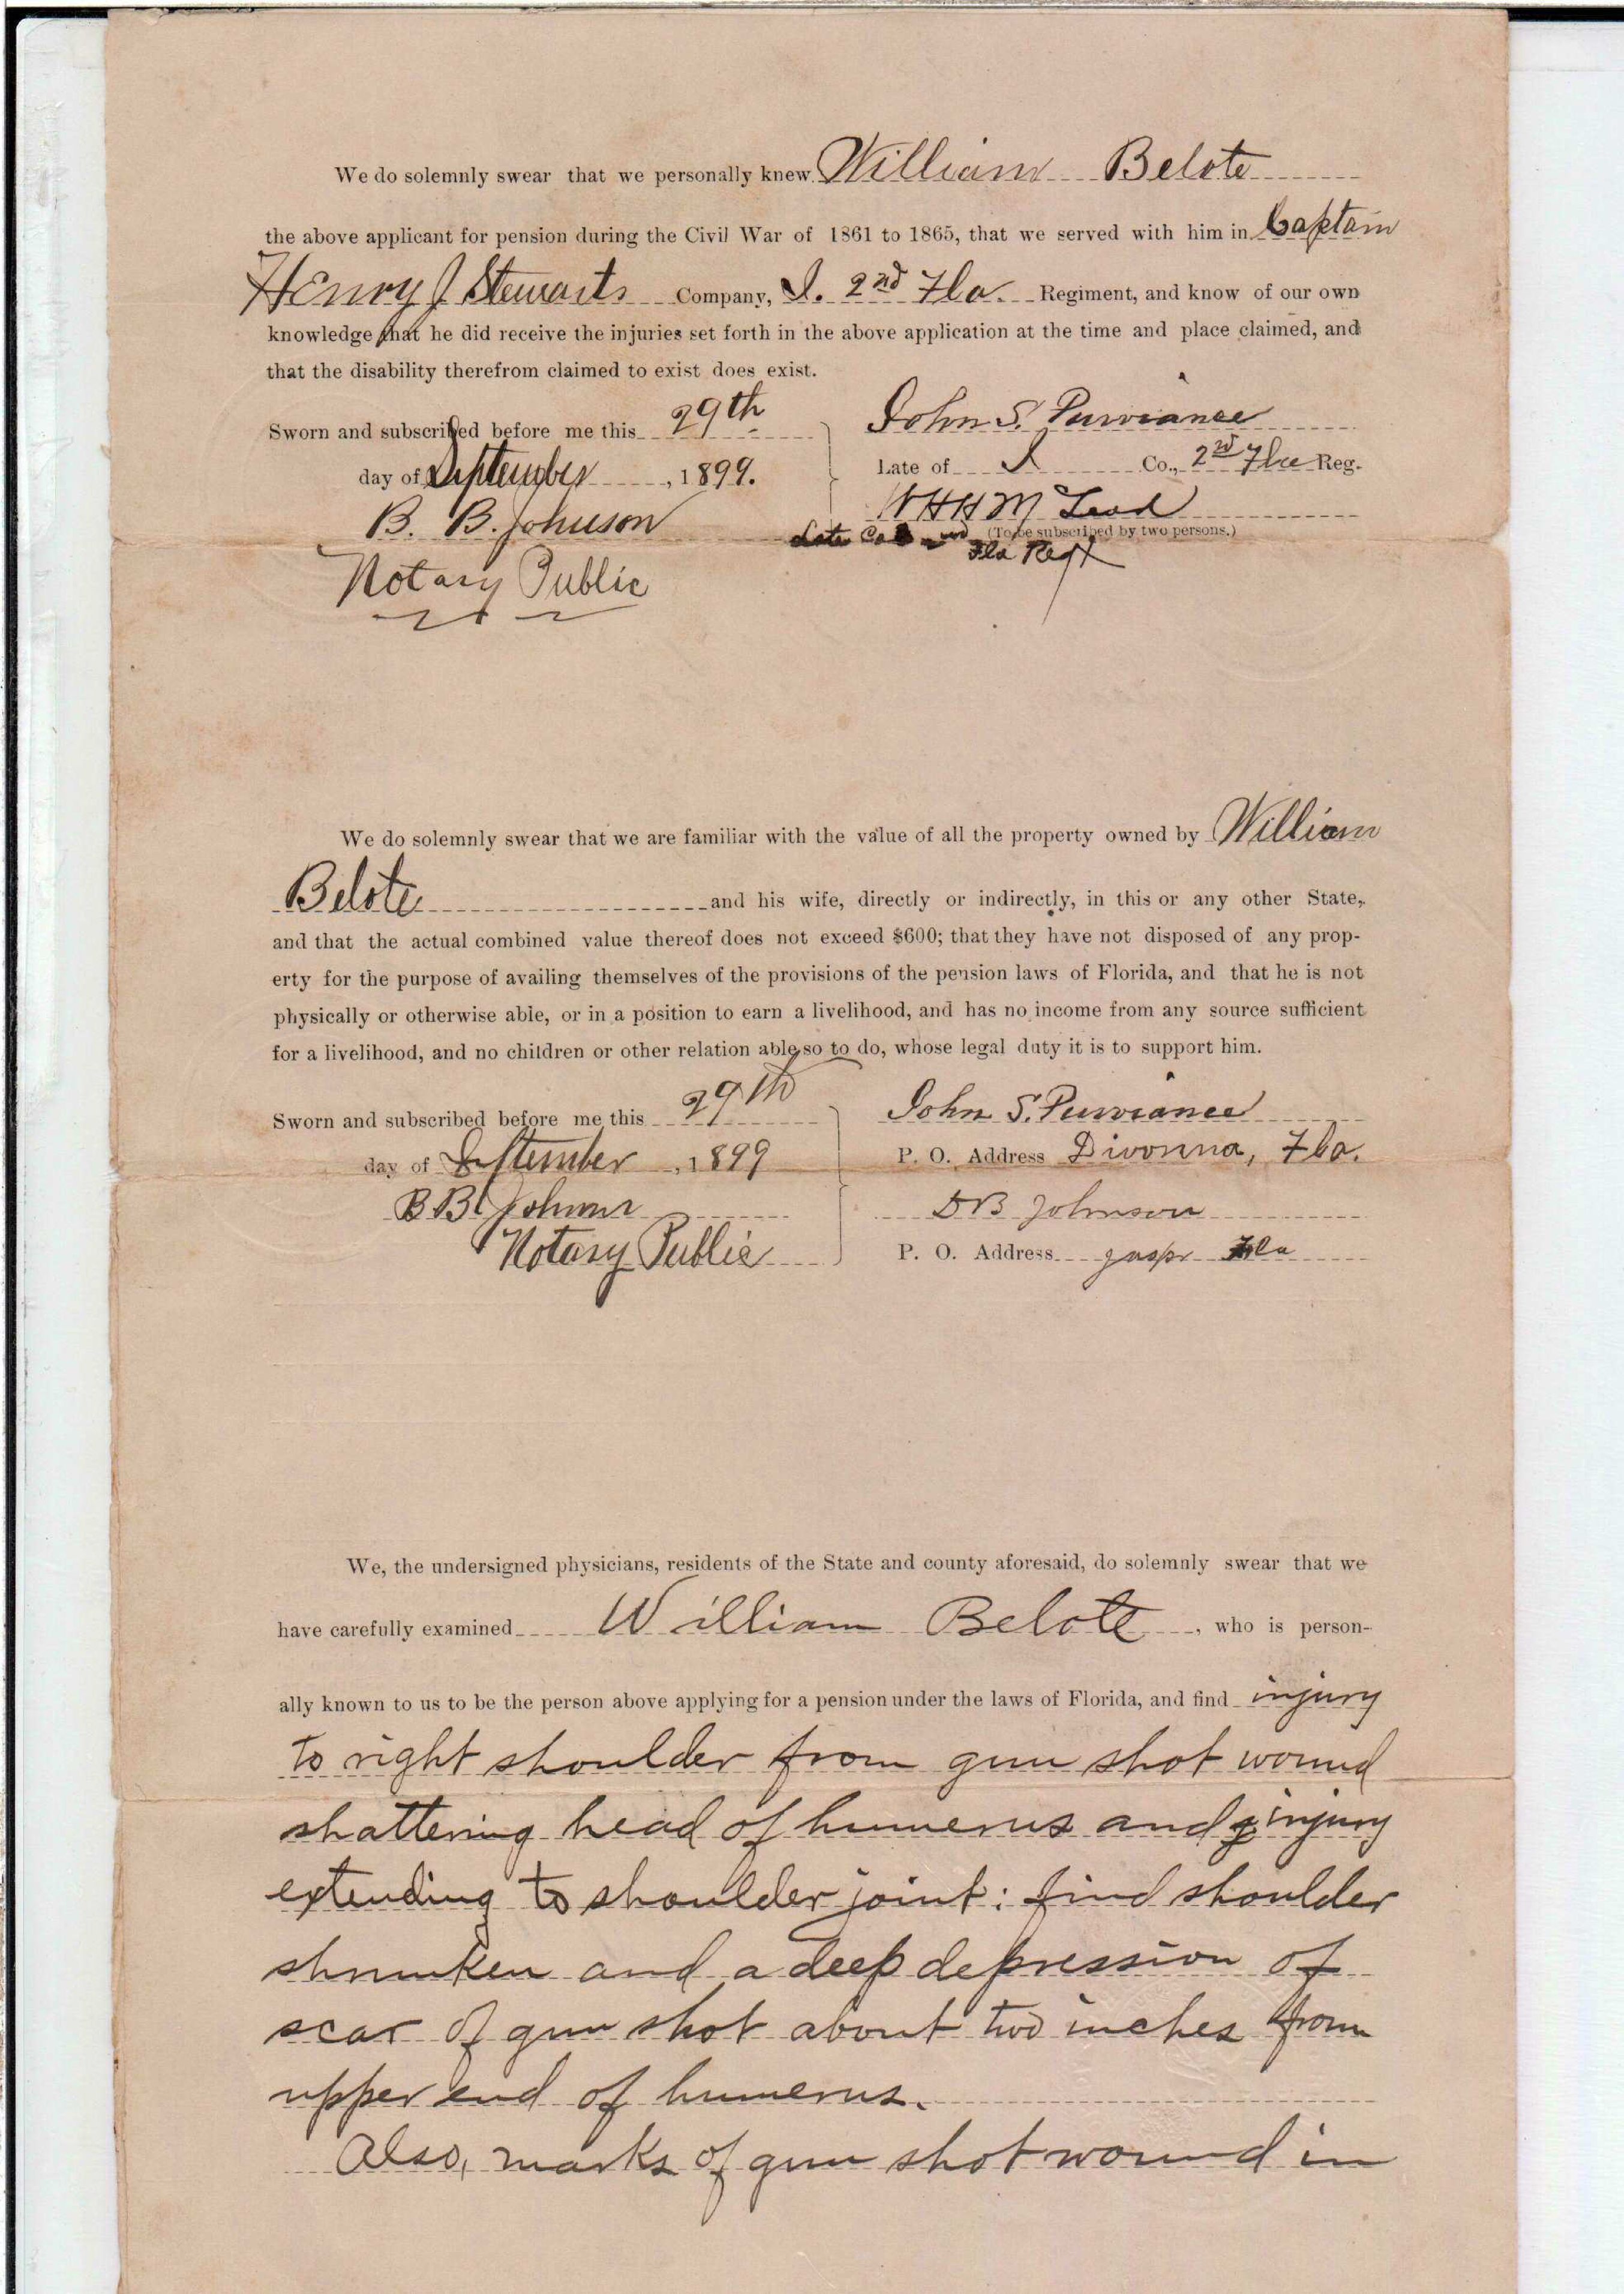 We do solemnly swear that we personally knew William Belote
the above applicant for pension during the Civil War of 1861 to 1865, that we served with him in Captain
Henry J Stewarts Company, I. 2nd Fla. Regiment, and know of our own
knowledge that he did receive the injuries set forth in the above application at the time and place claimed, and
that the disability therefrom claimed to exist does exist.
Sworn and subscribed before me this 29th
day of September, 1899.
B. B. Johnson
Notary Public
John S. Purviance
Late of I Co., 2nd Fla Reg.
W H H M Leod
(To be subscribed by two persons.)
Late Co
Fla Regt
We do solemnly swear that we are familiar with the value of all the property owned by William
Belote and his wife, directly or indirectly, in this or any other State,
and that the actual combined value thereof does not exceed $600; that they have not disposed of any prop-
erty for the purpose of availing themselves of the provisions of the pension laws of Florida, and that he is not
physically or otherwise able, or in a position to earn a livelihood, and has no income from any source sufficient
for a livelihood, and no children or other relation able so to do, whose legal duty it is to support him.
Sworn and subscribed before me this 29th
day of September, 1899
B B Johnson
Notary Public
John S. Purviance
P. O. Address Divonna, Fla.
D B Johnson
P. O. Address jaspr Fla
We, the undersigned physicians, residents of the State and county aforesaid, do solemnly swear that we
have carefully examined William Belote, who is person-
ally known to us to be the person above applying for a pension under the laws of Florida, and find injury
to right shoulder from gun shot wound
shattering head of humerus and injury
extending to shoulder joint: find shoulder
shrunken and a deep depression of
scar of gun shot about two inches from
upper end of humerus.
Also, marks of gun shot wound in